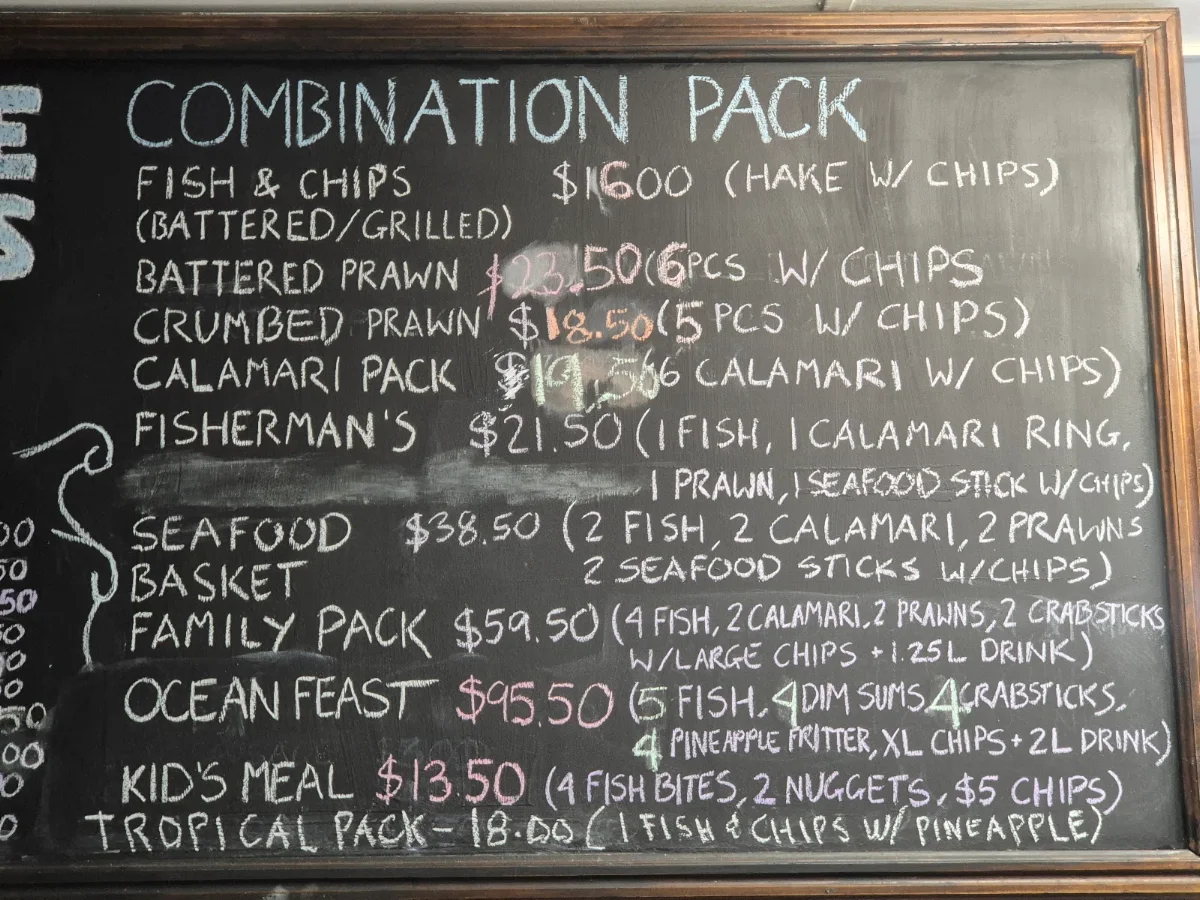 COMBINATION PACK
FISH & CHIPS $1600 (HAKE W/ CHIPS)
(BATTERED/GRILLED)
BATTERED PRAWN $23.50 (6 PCS W/ CHIPS
CRUMBED PRAWN $18.50 (5 PCS W/ CHIPS)
CALAMARI PACK $19.50 (6 CALAMARI W/ CHIPS)
FISHERMAN'S $21.50 (1 FISH, 1 CALAMARI RING,
1 PRAWN, 1 SEAFOOD STICK W/CHIPS)
SEAFOOD $38.50 (2 FISH, 2 CALAMARI, 2 PRAWNS
BASKET 2 SEAFOOD STICKS W/CHIPS)
FAMILY PACK $59.50 (4 FISH, 2 CALAMARI, 2 PRAWNS, 2 CRABSTICKS
W/LARGE CHIPS + 1.25L DRINK)
OCEAN FEAST $95.50 (5 FISH, 4 DIM SUMS 4 CRABSTICKS,
4 PINEAPPLE FRITTER, XL CHIPS + 2L DRINK)
KID'S MEAL $13.50 (4 FISH BITES, 2 NUGGETS, $5 CHIPS)
TROPICAL PACK - 18.00 (1 FISH & CHIPS W/ PINEAPPLE)